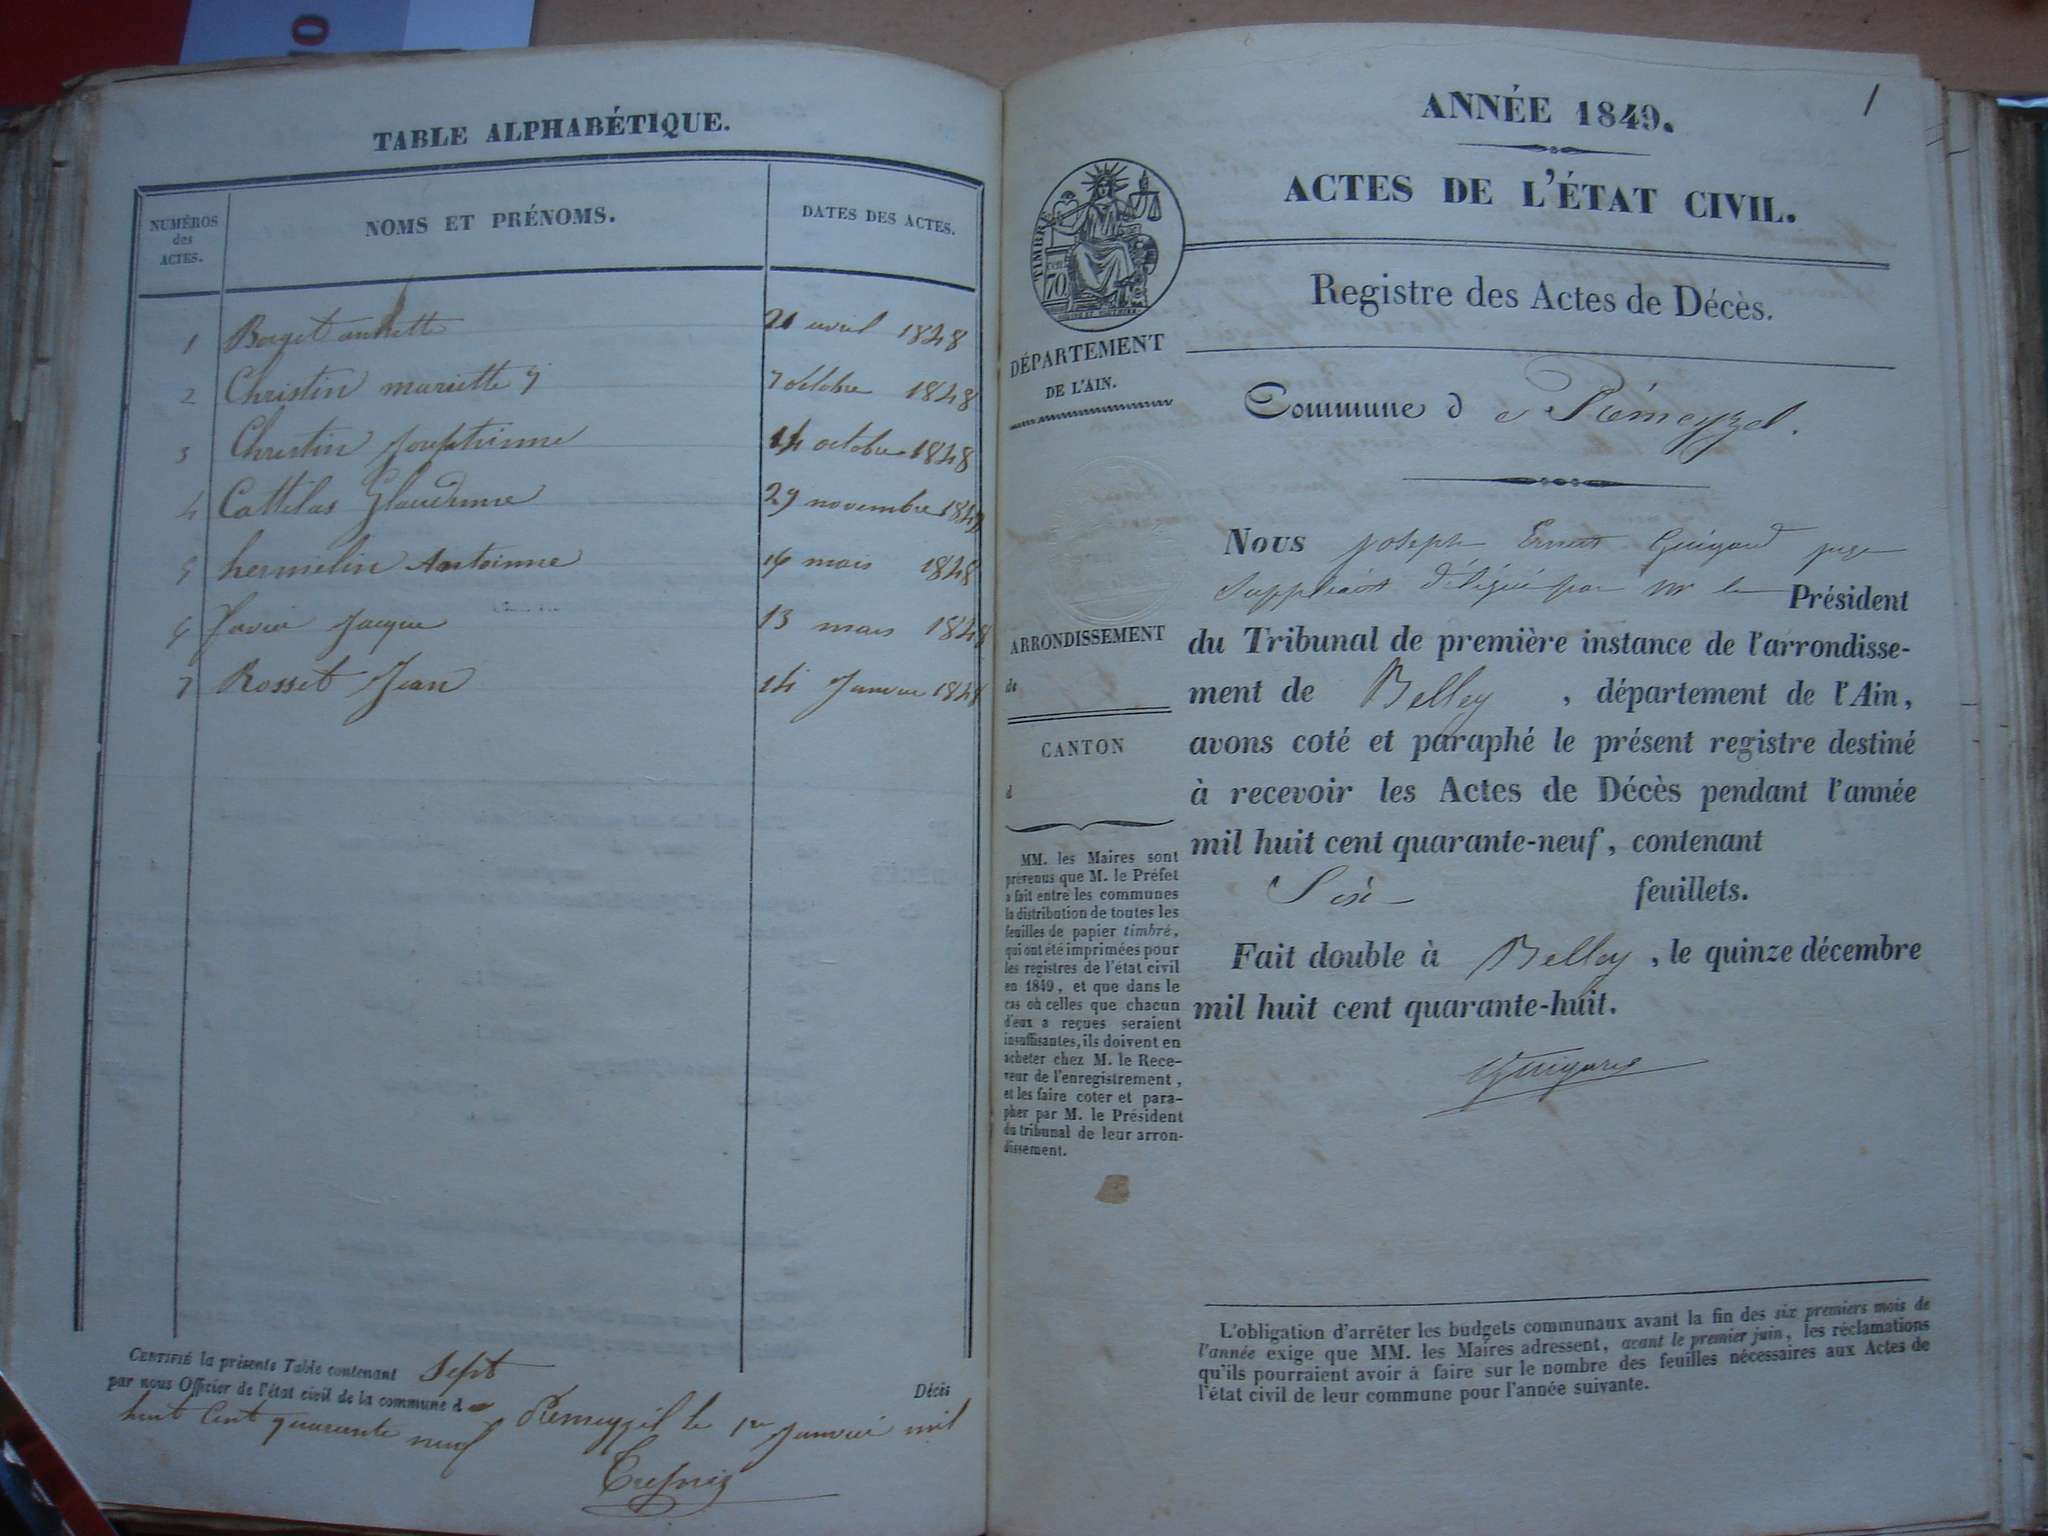 TABLE ALPHABÉTIQUE.
NUMÉROS des ACTES.
NOMS ET PRÉNOMS.
DATES DES ACTES.
1 Borget 21 avril 1848
2 Christin mariette 7 octobre 1848
3 Christin Josephinne 14 octobre 1848
4 Cattilas Glaudinne 29 novembre 1848
5 hermelin Antoinne 16 mais 1848
6 Jacque 13 mars 1848
7 Rosset Jean 14 Janvier 1848
CERTIFIÉ la présente Table contenant Sept Décès
par nous Officier de l'état civil de la commune de Prémeyzel le 1er Janvier mil
huit Cent quarante neuf
1
ANNÉE 1849.
ACTES DE L'ÉTAT CIVIL.
TIMBRE
70
Registre des Actes de Décès.
DÉPARTEMENT
DE L'AIN.
Commune de Prémeyzel.
Nous Joseph Ernest Guigard juge
Suppléant délégué par Mr le Président
du Tribunal de première instance de l'arrondisse-
ment de Belley, département de l'Ain,
avons coté et paraphé le présent registre destiné
à recevoir les Actes de Décès pendant l'année
mil huit cent quarante-neuf, contenant
Six feuillets.
Fait double à Belley, le quinze décembre
mil huit cent quarante-huit.
Guigard
ARRONDISSEMENT
de
CANTON
d
MM. les Maires sont
prévenus que M. le Préfet
a fait entre les communes
la distribution de toutes les
feuilles de papier timbré,
qui ont été imprimées pour
les registres de l'état civil
en 1849, et que dans le
cas où celles que chacun
d'eux a reçues seraient
insuffisantes, ils doivent en
acheter chez M. le Rece-
veur de l'enregistrement,
et les faire coter et para-
pher par M. le Président
du tribunal de leur arron-
dissement.
L'obligation d'arrêter les budgets communaux avant la fin des six premiers mois de
l'année exige que MM. les Maires adressent, avant le premier juin, les réclamations
qu'ils pourraient avoir à faire sur le nombre des feuilles nécessaires aux Actes de
l'état civil de leur commune pour l'année suivante.